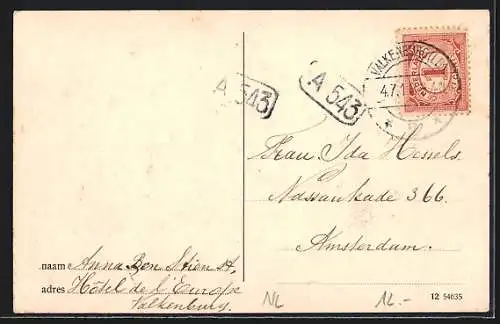 A 543
A 543
VALKENBURG
4.7.1
1
Frau. Ida Hessels.
Nassaukade 366.
Amsterdam.
naam Anna
adres Hôtel de l'Europe
Valkenburg.
NL
12.-
12 54035